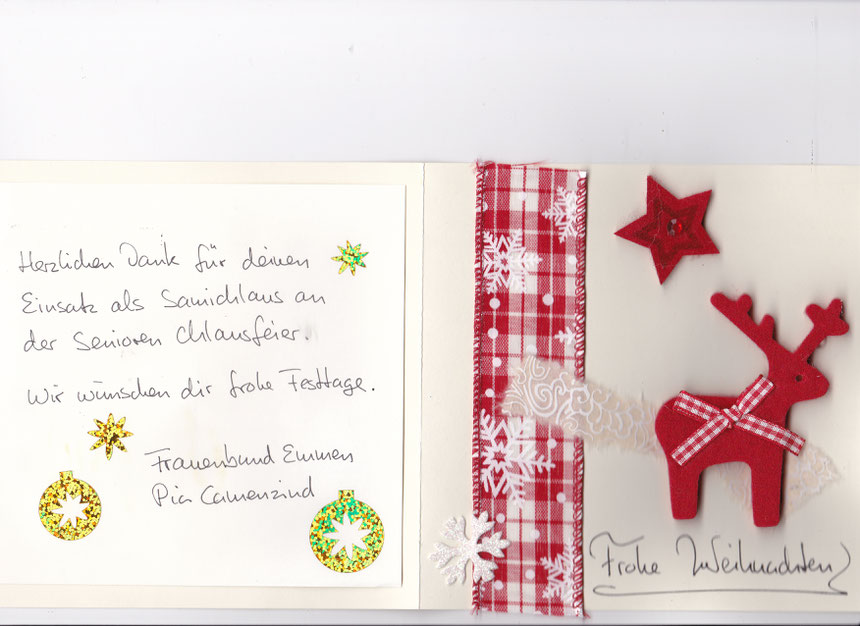 Herzlichen Dank für deinen
Einsatz als Samichlaus an
der Senioren Chlausfeier.
Wir wünschen dir frohe Festtage.
Frauenbund Emmen
Pia Camenzind
Frohe Weihnachten